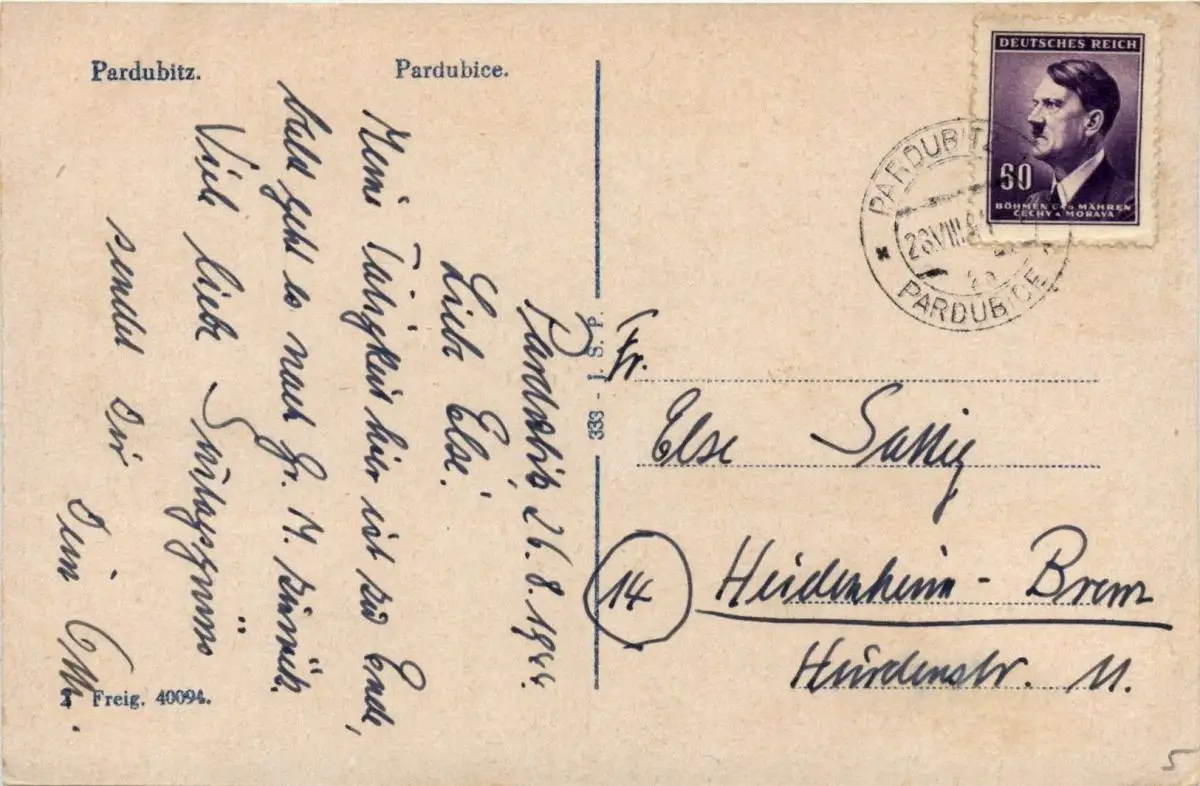 Pardubitz. Pardubice.
Pardubitz, 26.8.1944.
Liebe Else!
Meine Tätigkeit hier ist zu Ende,
bald geht es nach Gr. M. zurück.
Viele liebe Sonntagsgrüsse
sendet Dir
Dein
333 - I. S. P.
2 Freig. 40094.
DEUTSCHES REICH
60
BÖHMEN UND MÄHREN
ČECHY A MORAVA
PARDUBITZ
26.VIII.
PARDUBICE
Fr.
Else
14 Heidenheim - Brenz
Hürdenstr. 11.
5